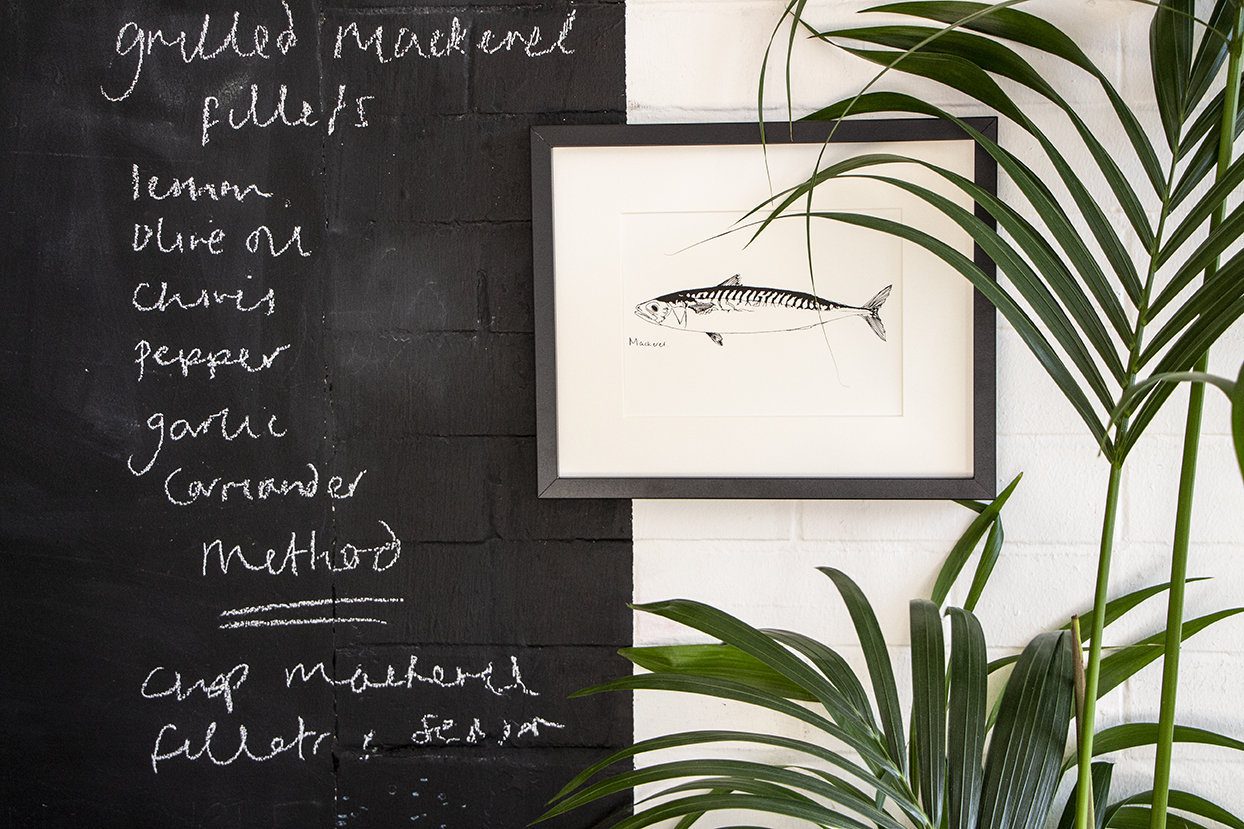 grilled Mackerel
fillets
lemon
olive oil
Chives
pepper
garlic
Coriander
Method
chop mackerel
fillets & season
Mackerel